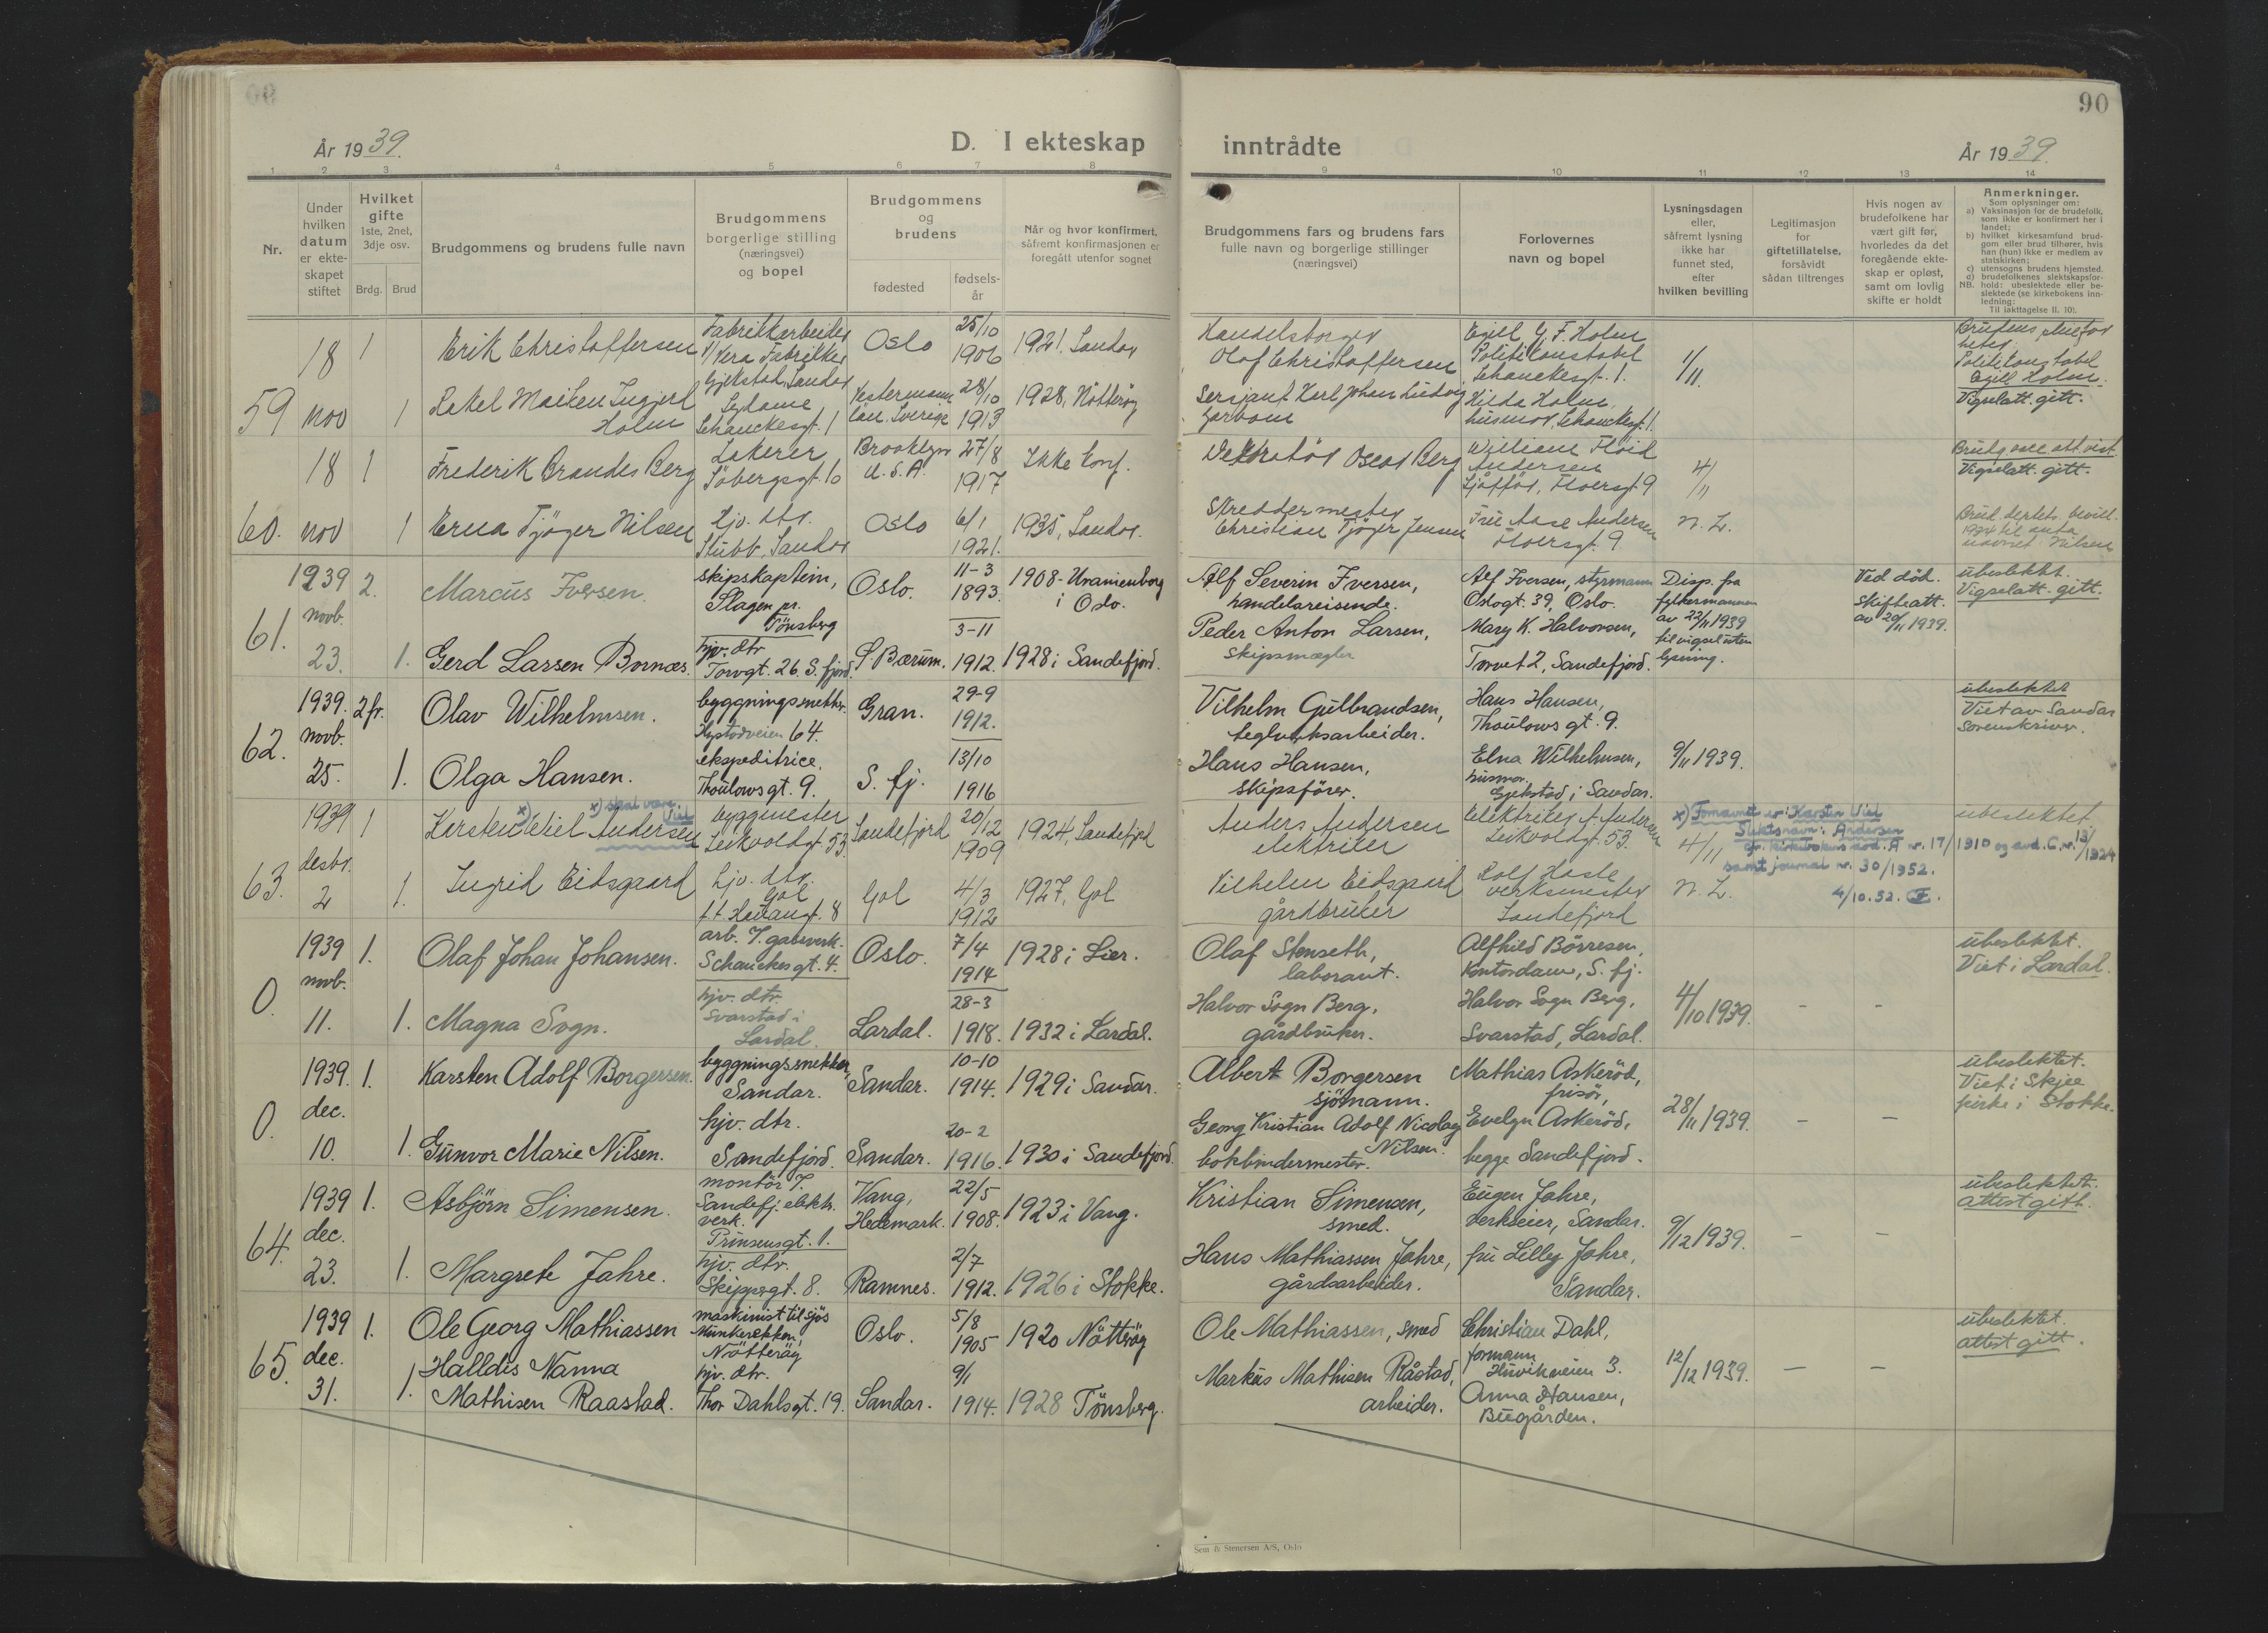 90
År 1939.
D. I ekteskap inntrådte
År 1939.
1 2 3 4 5 6 7 8 9 10 11 12 13 14
Nr.
Under hvilken datum er ekteskapet stiftet
Hvilket gifte 1ste, 2net, 3dje osv.
Brdg. Brud
Brudgommens og brudens fulle navn
Brudgommens borgerlige stilling (næringsvei) og bopel
Brudgommens og brudens
fødested
fødselsår
Når og hvor konfirmert, såfremt konfirmasjonen er foregått utenfor sognet
Brudgommens fars og brudens fars fulle navn og borgerlige stillinger (næringsvei)
Forlovernes navn og bopel
Lysningsdagen eller, såfremt lysning ikke har funnet sted, efter hvilken bevilling
Legitimasjon for giftetillatelse, forsåvidt sådan tiltrenges
Hvis nogen av brudefolkene har vært gift før, hvorledes da det foregående ekteskap er opløst, samt om lovlig skifte er holdt
Anmerkninger.
Som oplysninger om:
a) Vaksinasjon for de brudefolk, som ikke er konfirmert her i landet;
b) hvilket kirkesamfund brudgom eller brud tilhører, hvis han (hun) ikke er medlem av statskirken;
c) utensogns brudens hjemsted.
d) brudefolkenes slektskapsforhold: ubeslektede eller beslektede (se kirkebokens innledning:
NB. Til iakttagelse II. 10).
59 18 nov
1 Erik Christoffersen Fabrikkarbeider v/ Vera Fabrikker Gjekstad, Sandar Oslo 25/10 1906 1921. Sandar
Handelsborger Olaf Christoffersen
Egill G. F. Holm Politikonstabel Schanckesgt. 1.
1/11.
Politikonstabel Egill Holm.
Vigselatt. gitt.
1 Rakel Maiken Ingjerd Holm Schanckesgt. 1 28/10 1913 1928, Nøtterøy
Sersjant Karl Johan Ludvig
Hilda Holm, husmor, Schanckesgt. 1.
60. 18 nov
1 Frederik Brandes Berg Lakerer Søbergsgt. 10 Brooklyn U.S.A. 27/8 1917 Ikke konf.
Dekoratør Oscar Berg
William Floid Andersen Sjåfør, 9
4/11
Vigselatt. gitt.
1 Erna Tjøger Nilsen Hj. dtr. Stubb, Sandar Oslo 6/1 1921. 1935, Sandar.
Skreddermester Christian Tjøger Jensen
Fru Aase Andersen 9
n. L.
61. 1939 novb. 23.
2. Marcus Iversen. skipskaptein, Slagen pr. Tønsberg Oslo. 11-3 1893. 1908 - Uranienborg i Oslo.
Alf Severin Iversen, handelsreisende.
Alf Iversen, styrmann Oslogt. 39, Oslo.
Disp. fra fylkesmannen av 22/11 1939 til vigsel uten lysning.
Ved död. Skifteatt. av 20/11 1939.
ubeslektet. Vigselatt. gitt.
1. Gerd Larsen Bornæs. hjv. dtr Torvgt. 26. S. fjord. S. Bærum. 3-11 1912. 1928 i Sandefjord.
Peder Anton Larsen, Skipsmægler
Mary K. Halvorsen, Torvet 2, Sandefjord.
62. 1939. novb. 25.
2 fr. Olav Wilhelmsen. bygningssnekker. Nystadveien 64. Gran. 29-9 1912.
Vilhelm Gulbrandsen, teglverksarbeider.
Hans Hansen, Thaulowsgt. 9.
9/11 1939.
ubeslektet Viet av Sandar Sorenskriver.
1. Olga Hansen. ekspeditrice. Thaulowsgt. 9. S. fj. 13/10 1916
Hans Hansen, skipsfører.
Elna Wilhelmsen, husmor. Gjekstad i Sandar.
63. 1939 desbr. 2
1 Karsten x) Wiel Andersen x) skal være: Viel byggmester Leikvoldgt. 53. Sandefjord 20/12 1909 1924, Sandefjord
Anders Andersen elektriker
Elektriker A. Andersen Leikvoldgt. 53.
4/11 n. L.
x) Fornavnet er: Karsten Viel
Slektsnavn: Andersen
cfr. kirkebokens avd. A nr. 17/1910 og avd. C. nr. 13/1924
samt journal nr. 30/1952.
4/10. 52.
ubeslektet
1. Ingrid Eidsgaard hjv. dtr. Gol Gol 4/3 1912 1927, Gol
Vilhelm Eidsgaard gårdbruker
Rolf Hasle verksmester Sandefjord
0. 1939 novb. 11.
1. Olaf Johan Johansen. arb. v. gassverk. Schanckesgt. 4. Oslo. 7/4 1914 1928 i Lier.
Olaf Stenseth, laborant.
Alfhild Börresen, Kontordame, S. fj.
4/10 1939. - -
ubeslektet. Viet i Lardal.
1. Magna Sogn. hjv. dtr. Svarstad i Lardal. Lardal. 28-3 1918. 1932 i Lardal.
Halvor Sogn Berg, gårdbruker.
Halvor Sogn Berg, Svarstad, Lardal.
0. 1939. dec. 10.
1. Karsten Adolf Borgersen. byggningssnekker, Sandar. Sandar. 10-10 1914. 1929 i Sandar.
Albert Borgersen sjömann.
Mathias Askeröd, frisör,
28/11 1939. - -
ubeslektet. Viet i Skjee kirke i Stokke.
1. Gunvor Marie Nilsen. hjv. dtr. Sandefjord. Sandar. 20-2 1916. 1930 i Sandefjord.
Georg Kristian Adolf Nicolay Nilsen. bokbindermester.
Evelyn Askeröd, begge Sandefjord.
64. 1939 dec. 23.
1. Asbjörn Simensen. montör v. Sandefj. elektr. verk. Prinsensgt. 1. Vang, Hedemark. 22/5 1908. 1923 i Vang.
Kristian Simensen, smed.
Eugen Jahre, verkseier, Sandar.
9/12 1939. - -
ubeslektet. attest gitt.
1. Margrete Jahre. hjv. dtr. Skippergt. 8. Ramnes. 2/7 1912. 1926 i Stokke.
Hans Mathiassen Jahre, gårdsarbeider.
fru Lilly Jahre, Sandar.
65. 1939 dec. 31.
1. Ole Georg Mathiassen maskinist til sjös Munkerekken, Nötteröy Oslo. 5/8 1905 1920 Nötteröy
Ole Mathiassen, smed
Christian Dahl, formann Huvikveien 3.
12/12 1939. - -
ubeslektet. attest gitt.
1. Halldis Nanna Mathisen Raastad. hjv. dtr. Thor Dahlsgt. 19. Sandar. 9/1 1914. 1928 Tönsberg.
Markus Mathisen Råstad, arbeider.
Anna Hansen, Bugården.
Sem & Stenersen A/S, Oslo